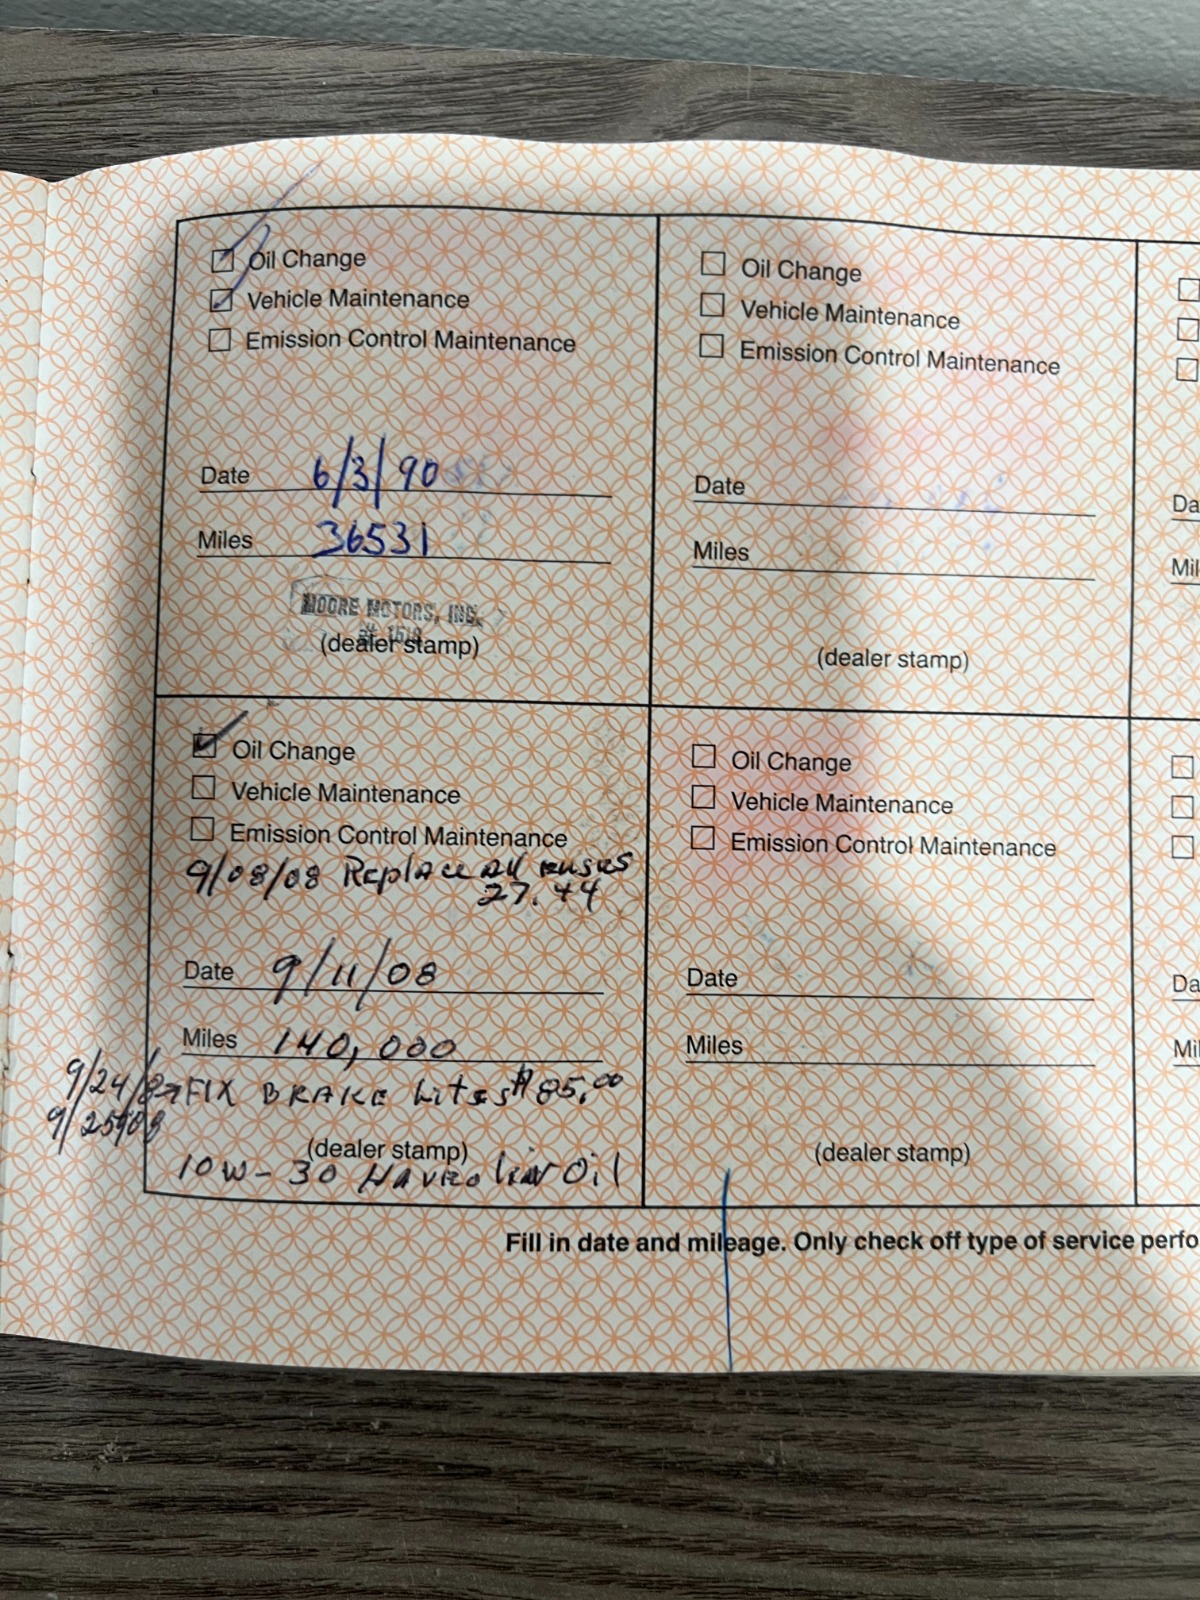 Oil Change
Vehicle Maintenance
Emission Control Maintenance
Date 6/3/90
Miles 36531
MOORE MOTORS, INC.
(dealer stamp)
Oil Change
Vehicle Maintenance
Emission Control Maintenance
Date
Miles
(dealer stamp)
Da
Mil
Oil Change
Vehicle Maintenance
Emission Control Maintenance
9/08/08 Replace All
27.44
Date 9/11/08
Miles 140,000
9/24/ FIX BRAKE Lites $85.00
9/25/08
(dealer stamp)
10W-30 Oil
Oil Change
Vehicle Maintenance
Emission Control Maintenance
Date
Miles
(dealer stamp)
Da
Mil
Fill in date and mileage. Only check off type of service perfo